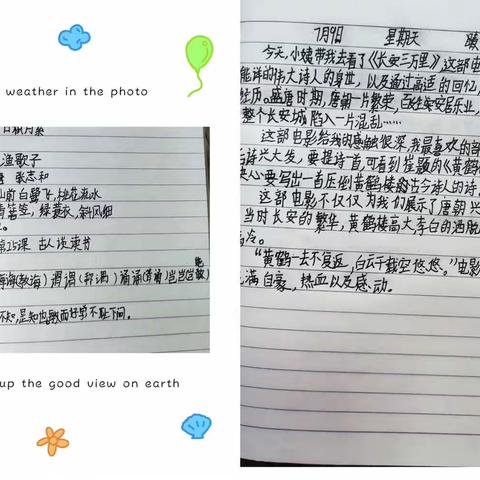 weather in the photo
日积月累
渔歌子
唐 张志和
山前白鹭飞,桃花流水
青箬笠,绿蓑衣,斜风细
第25课 古人谈读书
不知,是知也 敏而好学 不耻下问。
up the good view on earth
7月9日 星期天
今天,小姨带我去看了《长安三万里》这部电
能详的伟大诗人的身世,以及通过高适的回忆,
经历。盛唐时期,唐朝一片繁荣,百姓安居乐业,
整个长安城陷入一片混乱……
这部电影给我的感触很深,我最喜欢的
后诗兴大发,要提诗首,可看到崔颢的《黄鹤
决心要写出一首压倒黄鹤楼的古今诗人的诗。
这部电影不仅仅为我们展示了唐朝兴
当时长安的繁华,黄鹤楼高大李白的洒脱
“黄鹤一去不复返,白云千载空悠悠。”电影
满自豪,热血以及感动。